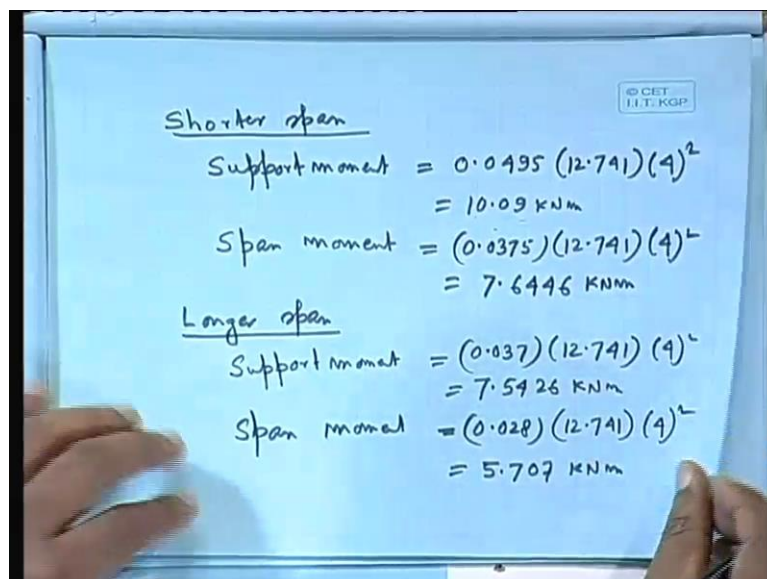 © CET
I.I.T. KGP
Shorter span
Support moment = 0.0495 (12.741)(4)²
= 10.09 KNm
Span moment = (0.0375)(12.741)(4)²
= 7.6446 KNm
Longer span
Support moment = (0.037)(12.741)(4)²
= 7.5426 KNm
Span moment = (0.028)(12.741)(4)²
= 5.707 KNm